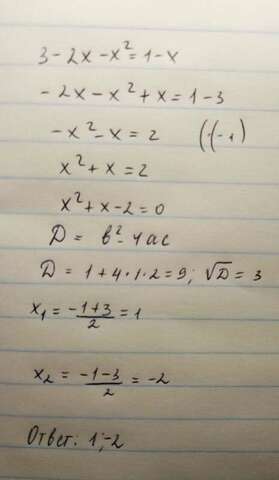 3 - 2x - x² = 1 - x
- 2x - x² + x = 1 - 3
- x² - x = 2 (·(-1)
x² + x = 2
x² + x - 2 = 0
D = b² - 4ac
D = 1 + 4 · 1 · 2 = 9; √D = 3
x₁ = (-1+3)/2 = 1
x₂ = (-1-3)/2 = -2
Ответ: 1; -2